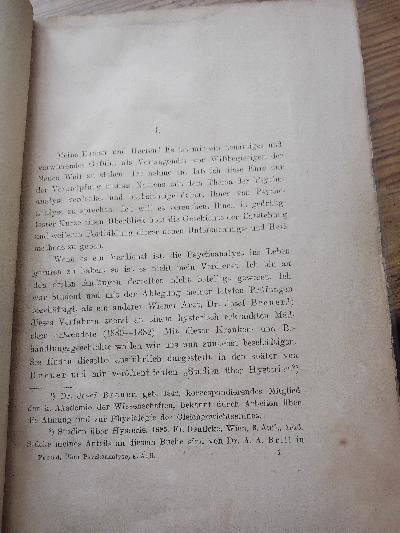 I.
Meine Damen und Herren! Es ist mir ein neuartiges und
verwirrendes Gefühl, als Vortragender vor Wißbegierigen der
Neuen Welt zu stehen. Ich nehme an, daß ich diese Ehre nur
der Verknüpfung meines Namens mit dem Thema der Psycho-
analyse verdanke, und beabsichtige daher, Ihnen von Psycho-
analyse zu sprechen. Ich will es versuchen, Ihnen in gedräng-
tester Kürze einen Überblick über die Geschichte der Entstehung
und weiteren Fortbildung dieser neuen Untersuchungs- und Heil-
methode zu geben.
Wenn es ein Verdienst ist, die Psychoanalyse ins Leben
gerufen zu haben, so ist es nicht mein Verdienst. Ich bin an
den ersten Anfängen derselben nicht beteiligt gewesen. Ich
war Student und mit der Ablegung meiner letzten Prüfungen
beschäftigt, als ein anderer Wiener Arzt, Dr. Josef Breuer¹),
dieses Verfahren zuerst an einem hysterisch erkrankten Mäd-
chen anwendete (1880–1882). Mit dieser Kranken- und Be-
handlungsgeschichte wollen wir uns nun zunächst beschäftigen.
Sie finden dieselbe ausführlich dargestellt in den später von
Breuer und mir veröffentlichten „Studien über Hysterie“²)
¹) Dr. Josef Breuer, geb. 1842, korrespondierendes Mitglied
der k. Akademie der Wissenschaften, bekannt durch Arbeiten über
die Atmung und zur Physiologie des Gleichgewichtssinnes.
²) Studien über Hysterie, 1895, Fr. Deuticke, Wien,
Stücke meines Anteils an diesem Buche sind von Dr. A. A. Brill in
Freud, Über Psychoanalyse, 1